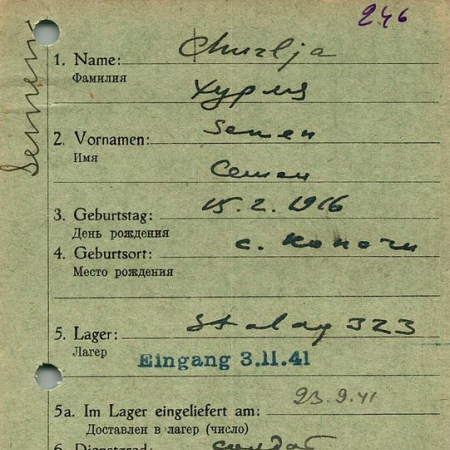 246
Semen
1. Name: Churlja
Фамилия
Хурля
2. Vornamen: Semen
Имя
Семен
3. Geburtstag: 15.2.1916
День рождения
4. Geburtsort: с. Коночи
Место рождения
5. Lager: Stalag 323
Лагер
Eingang 3.11.41
5a. Im Lager eingeliefert am: 23.9.41
Доставлен в лагер (число)
6. Dienstgrad: солдат